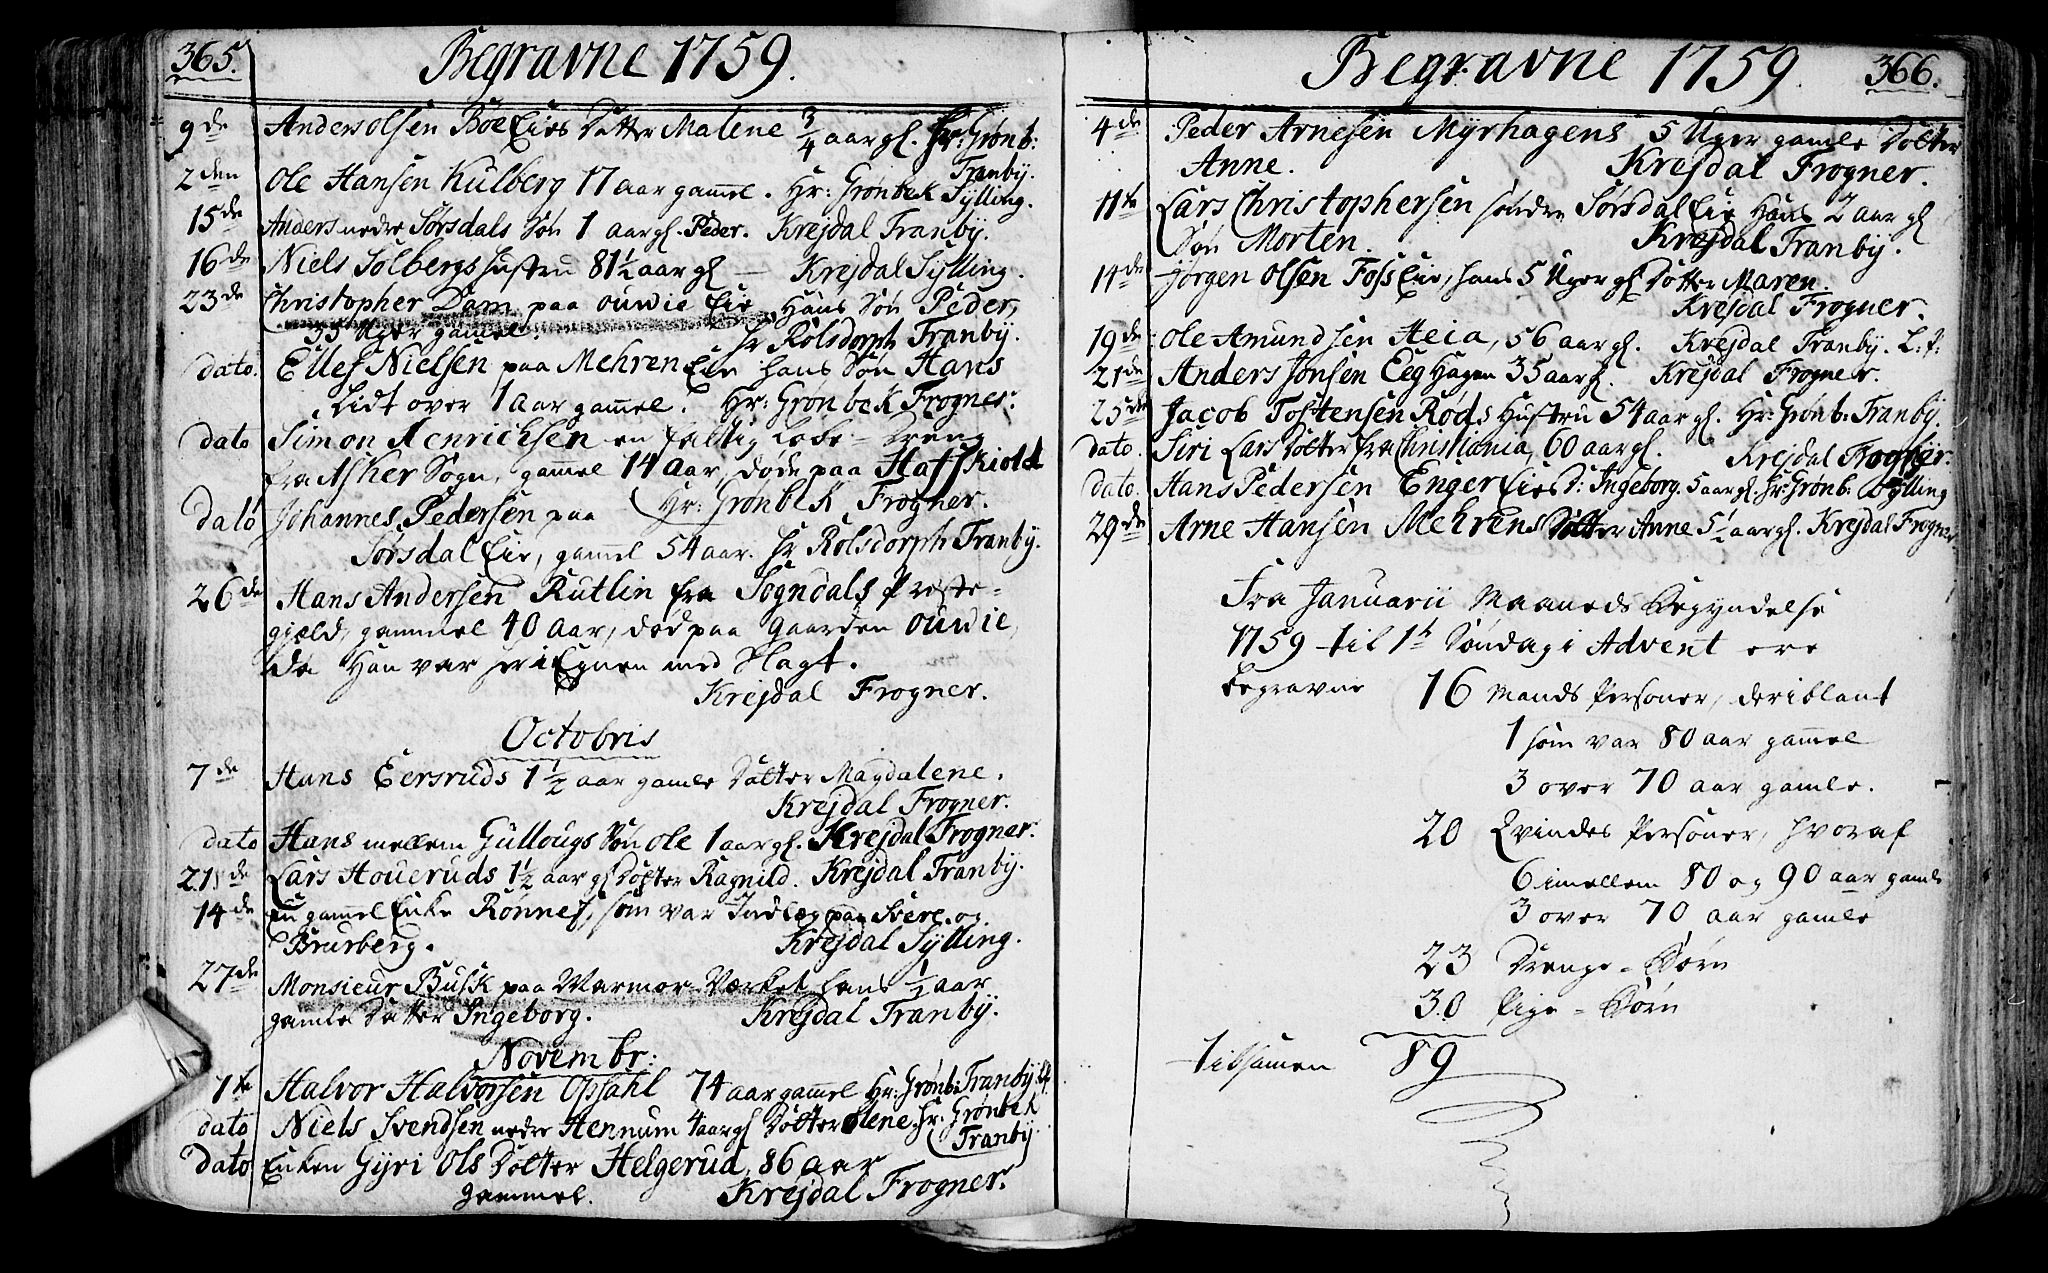 365.
Begravne 1759.
9de Anders Olsen Böe Eies Datter Malene 3/4 aar gl. Hr: Grönb:
Tranby.
2den Ole Hansen Kulberg 17 aar gammel. Hr: Grönbek Sylling.
15de Anders nedre Sörsdals Sön 1 aar gl. Peder. Krejdal Tranby.
16de Niels Solbergs Hustru 81½ aar gl — Krejdal Sylling.
23de Christopher Dam paa Ouwie Eie, Hans Sön Peder,
33 Uger gamel. Hr Rolsdorph Tranby.
dato. Ellef Nielsen paa Mehren Eie hans Sön Hans
Lidt over 1 aar gamel. Hr: Grönbek Frogner.
dato Simon Henrichsen en fattig Dreng
fra Asker Sogn, gammel 14 aar, döde paa Hafskiold
Hr: Grönbek Frogner.
dato Johannes Pedersen paa
Sörsdal Eie, gamel 54 aar. Hr Rolsdorph Tranby.
26de Hans Andersen Rutlin fra Sogndals Præste-
gjæld, gammel 40 aar, död paa Gaarden Ouwie,
da Han var her i Egnen med Slagt.
Krejdal Frogner.
Octobris
7de Hans Eersruds 1½ aar gamle Datter Magdalene.
Krejdal Frogner.
dato Hans mellem Gullougs Sön Ole 1 aar gl. Krejdal Frogner.
21de Lars Houeruds 1½ aar gl Dotter Ragnild. Krejdal Tranby.
14de En gamel Enke Rönnef, som var Indlæg paa Svere og
Brurberg. Krejdal Sylling.
27de Monsieur Busk paa Marmor-Værket hans ½ aar
gamle Datter Ingeborg. Krejdal Tranby.
Novembr:
1te Halvor Halvorsen Opsahl 74 aar gammel Hr: Grönb: Tranby.
dato Niels Svendsen nedre Hennum 4 aar gl Dotter Olene. Hr: Grönbek
Tranby.
dato Enken Gyri Ols Dotter Helgerud, 86 aar
gammel. Krejdal Frogner.
Begravne 1759. 366.
4de Peder Arnesen Myrhagens 5 Uger gamle Dotter
Anne. Krejdal Frogner.
11te Lars Christophersen söndre Sörsdal Eie Hans 2 aar gl
Sön Morten. Krejdal Tranby.
14de Jörgen Olsen Foss Eie, hans 5 Uger gl Dotter Maren.
Krejdal Frogner.
19de Ole Amundsen Heia, 56 aar gl. Krejdal Tranby. L: f:
21de Anders Jonsen Eeg Hagen 35 aar gl. Krejdal Frogner.
25de Jacob Tostensen Röds Hustru 54 aar gl. Hr: Grönb: Tranby.
dato. Siri Lars Dotter fra Christiania, 60 aar gl. Krejdal Frogner.
dato. Hans Pedersen Enger Eies D: Ingeborg. 5 aar gl. Hr: Grönb: Sylling
29de Arne Hansen Mehrens Dotter Anne 5½ aar gl. Krejdal Frogner.
Fra Januarii Maaneds Begyndelse
1759 til 1te Söndag i Advent ere
begravne 16 Mands Personer, deriblant
1 som var 80 aar gamel
3 over 70 aar gamle.
20 Qvindes Personer, hvoraf
6 imellem 80 og 90 aar gamle
3 over 70 aar gamle
23 Drenge-Börn
30 Pige-Börn
tilsamen 89